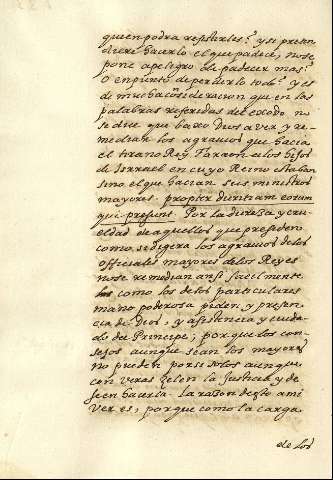 quien podra resistirles? y si preten
diere hacerlo el que padece, no se
pone a peligro de padecer mas?
O en punto de perderlo todo? y es
de mucha consideracion que en las
palabras referidas del exodo no
se dice que baxo Dios a ver, y re-
mediar los agravios que hacia
el tirano Rey Faraon a los hijos
de Isrrael en cuyo Reino estaban
sino el que hacian seis ministros
mayores. propter duritiam eorum
qui presunt. Por la dureza y cru-
eldad de aquellos que presiden
como se digera los agravios de los
officiales mayores de los Reyes
no se remedian ansi facilmente
como los de los particulares
mano poderosa piden, y presen-
cia de Dios, y asistencia y cuida-
do del Principe, porque los con-
sejos aunque sean los mayores
no pueden por si solos aunque
con veras zelen la Justicia y de
seen hacerla. La razon de esto a mi
ver es, porque como la carga
de los